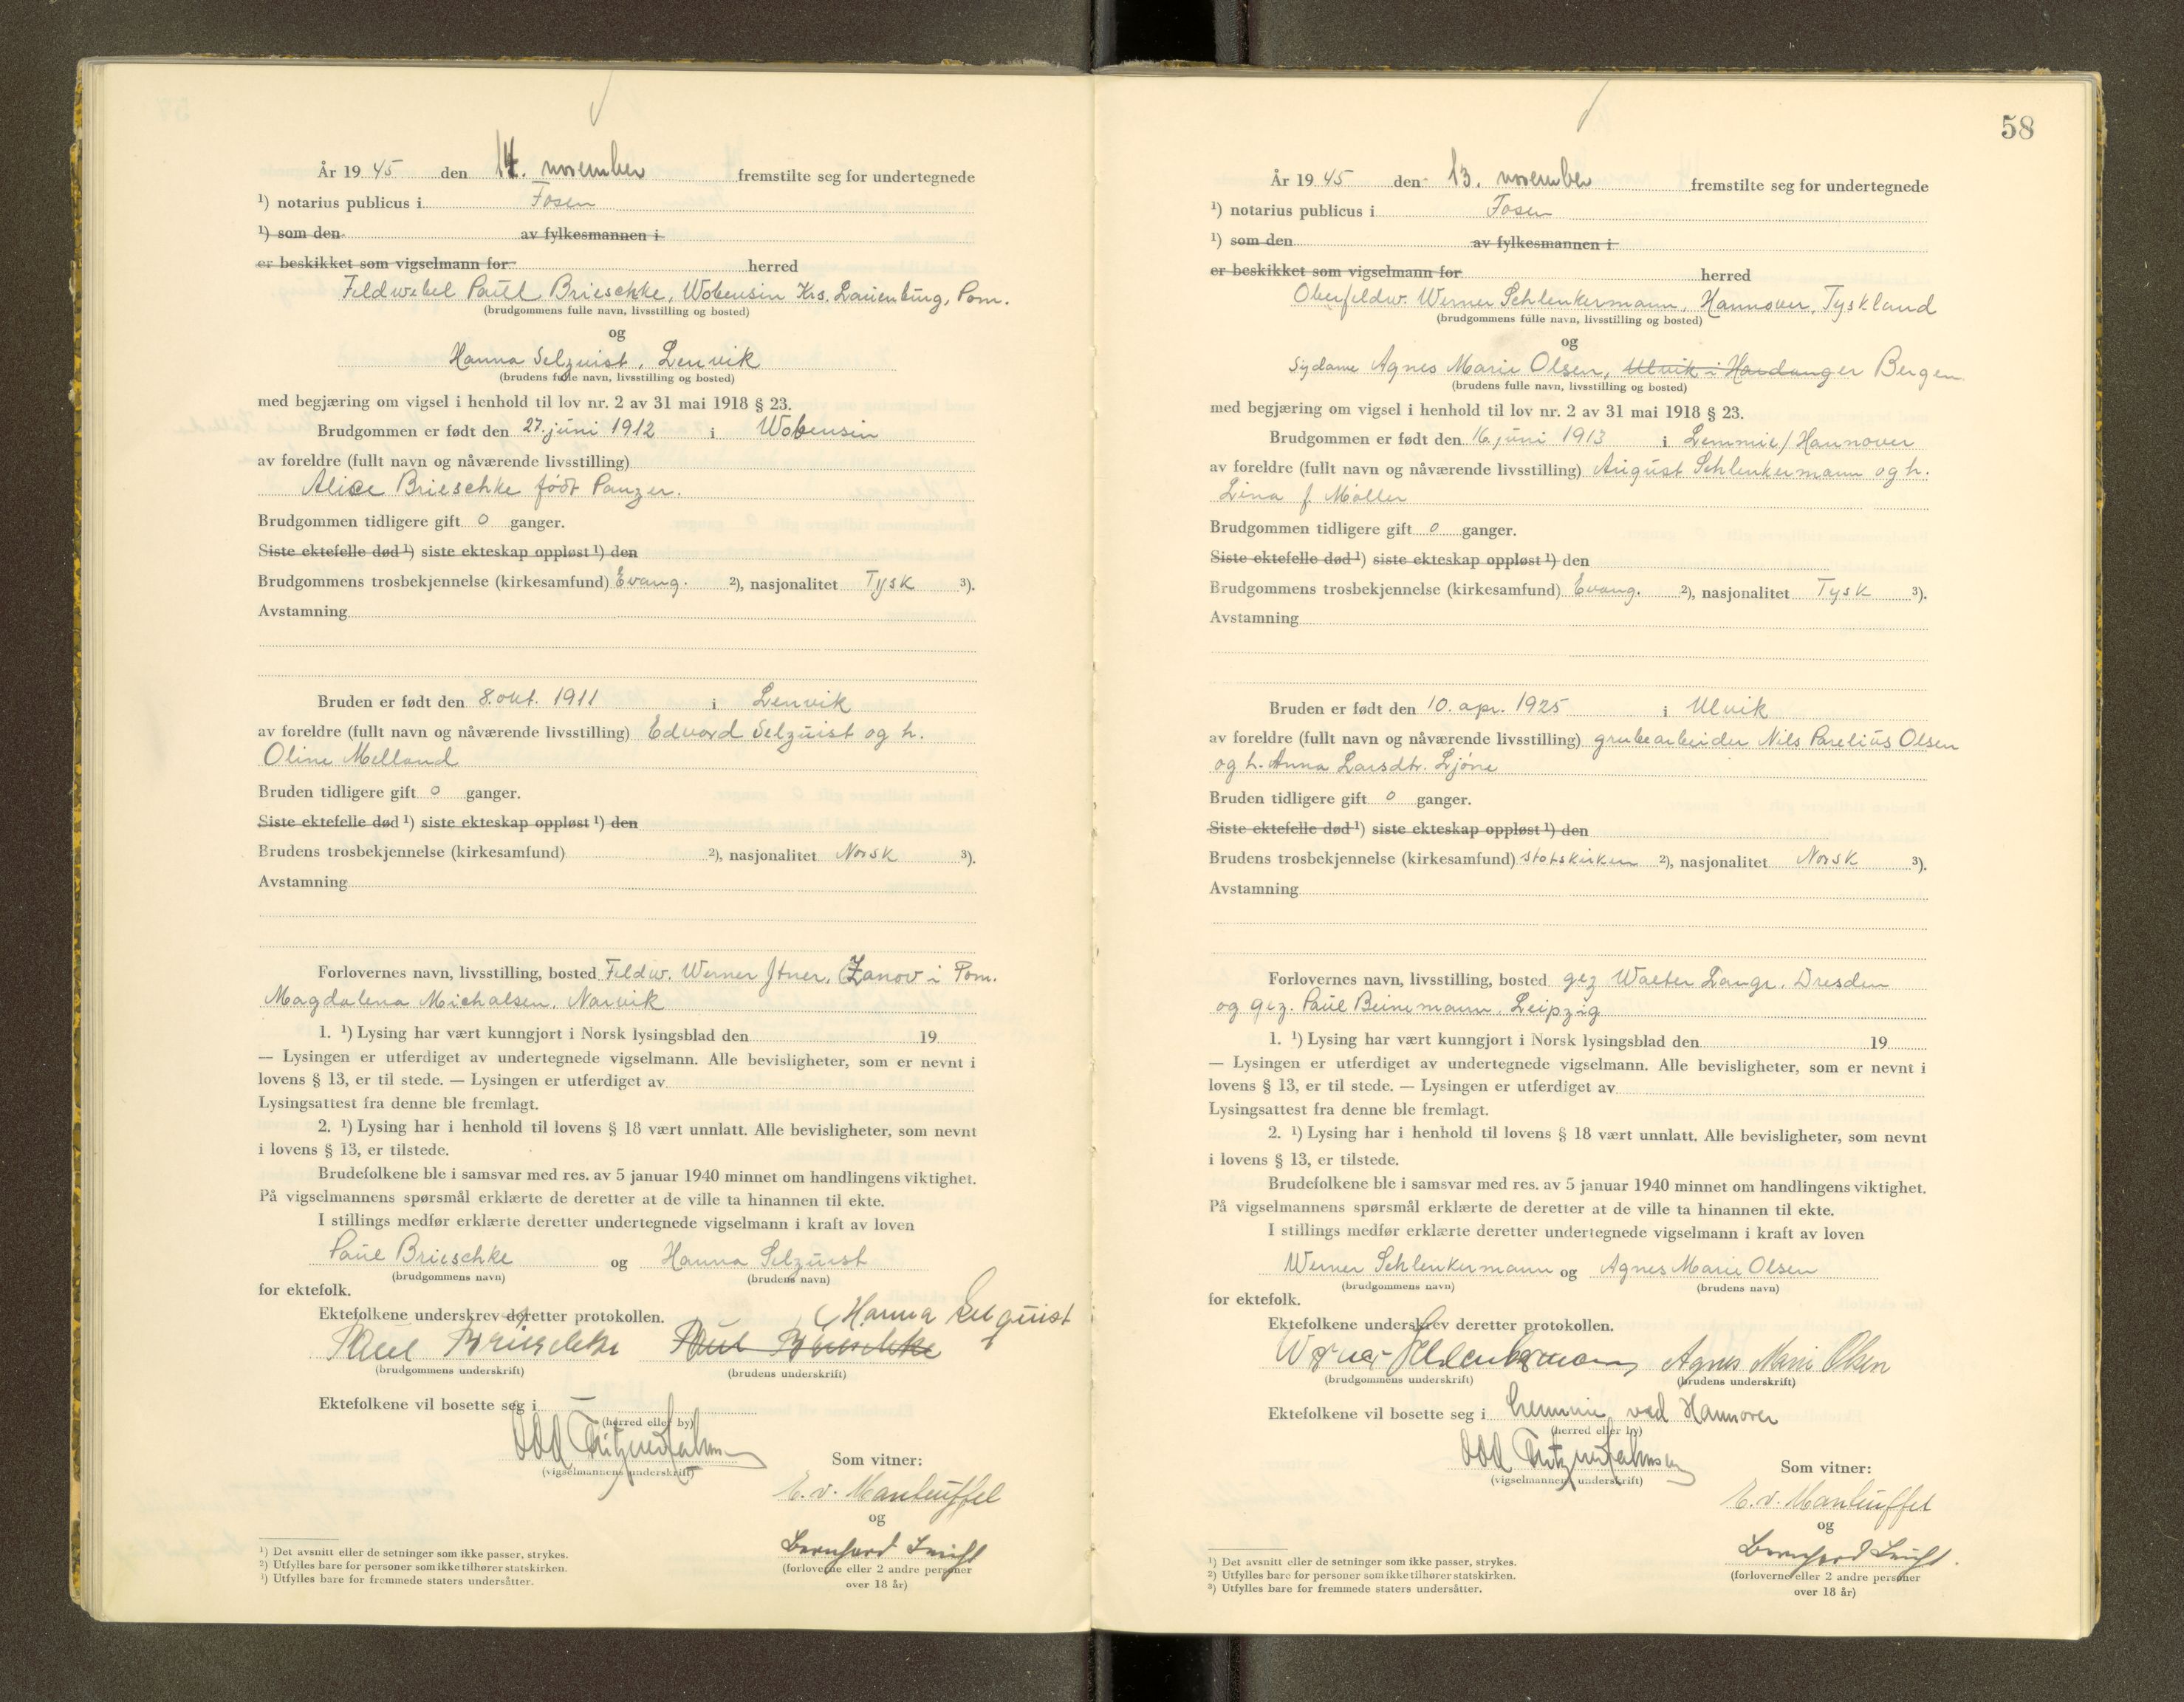 År 19 45 den 14. november fremstilte seg for undertegnede
¹) notarius publicus i Fosen
¹) som den av fylkesmannen i
er beskikket som vigselmann for herred
Feldwebel Paul Brieschke, Wobensin Krs. Lauenburg, Pom.
(brudgommens fulle navn, livsstilling og bosted)
og
Hanna Selquist, Lenvik
(brudens fulle navn, livsstilling og bosted)
med begjæring om vigsel i henhold til lov nr. 2 av 31 mai 1918 § 23.
Brudgommen er født den 27. juni 1912 i Wobensin
av foreldre (fullt navn og nåværende livsstilling)
Alice Brieschke født Panzer.
Brudgommen tidligere gift 0 ganger.
Siste ektefelle død ¹) siste ekteskap oppløst ¹) den
Brudgommens trosbekjennelse (kirkesamfund) Evang. ²), nasjonalitet Tysk ³).
Avstamning
Bruden er født den 8. okt. 1911 i Lenvik
av foreldre (fullt navn og nåværende livsstilling) Edvard Selquist og h.
Oline Melland
Bruden tidligere gift 0 ganger.
Siste ektefelle død ¹) siste ekteskap oppløst ¹) den
Brudens trosbekjennelse (kirkesamfund) ²), nasjonalitet Norsk ³).
Avstamning
Forlovernes navn, livsstilling, bosted Feldw. Werner Jtner, Zanov i Pom.
Magdalena Michalsen, Narvik
1. ¹) Lysing har vært kunngjort i Norsk lysingsblad den 19
— Lysingen er utferdiget av undertegnede vigselmann. Alle bevisligheter, som er nevnt i
lovens § 13, er til stede. — Lysingen er utferdiget av
Lysingsattest fra denne ble fremlagt.
2. ¹) Lysing har i henhold til lovens § 18 vært unnlatt. Alle bevisligheter, som nevnt
i lovens § 13, er tilstede.
Brudefolkene ble i samsvar med res. av 5 januar 1940 minnet om handlingens viktighet.
På vigselmannens spørsmål erklærte de deretter at de ville ta hinannen til ekte.
I stillings medfør erklærte deretter undertegnede vigselmann i kraft av loven
Paul Brieschke og Hanna Selquist
(brudgommens navn) (brudens navn)
for ektefolk.
Ektefolkene underskrev deretter protokollen. Hanna Selquist
Paul Brieschke Paul Brieschke
(brudgommens underskrift) (brudens underskrift)
Ektefolkene vil bosette seg i —
(herred eller by)
Odd
(vigselmannens underskrift)
Som vitner:
E. v. Manteuffel
og
Bernhard
(forloverne eller 2 andre personer
over 18 år)
¹) Det avsnitt eller de setninger som ikke passer, strykes.
²) Utfylles bare for personer som ikke tilhører statskirken.
³) Utfylles bare for fremmede staters undersåtter.
58
År 19 45 den 13. november fremstilte seg for undertegnede
¹) notarius publicus i Fosen
¹) som den av fylkesmannen i
er beskikket som vigselmann for herred
Oberfeldw. Werner Schlenkermann, Hannover, Tyskland
(brudgommens fulle navn, livsstilling og bosted)
og
Sydame Agnes Marie Olsen, Ulvik i Hardanger Bergen
(brudens fulle navn, livsstilling og bosted)
med begjæring om vigsel i henhold til lov nr. 2 av 31 mai 1918 § 23.
Brudgommen er født den 16. juni 1913 i Lemmie/Hannover
av foreldre (fullt navn og nåværende livsstilling) August Schlenkermann og h.
Lina f. Møller
Brudgommen tidligere gift 0 ganger.
Siste ektefelle død ¹) siste ekteskap oppløst ¹) den
Brudgommens trosbekjennelse (kirkesamfund) Evang. ²), nasjonalitet Tysk ³).
Avstamning
Bruden er født den 10. apr. 1925 i Ulvik
av foreldre (fullt navn og nåværende livsstilling) grubearbeider Nils Parelius Olsen
og h. Anna Larsdtr. Ljone
Bruden tidligere gift 0 ganger.
Siste ektefelle død ¹) siste ekteskap oppløst ¹) den
Brudens trosbekjennelse (kirkesamfund) statskirken ²), nasjonalitet Norsk ³).
Avstamning
Forlovernes navn, livsstilling, bosted gez Walter Lange, Dresden
og gez. Paul Beinemann, Leipzig
1. ¹) Lysing har vært kunngjort i Norsk lysingsblad den 19
— Lysingen er utferdiget av undertegnede vigselmann. Alle bevisligheter, som er nevnt i
lovens § 13, er til stede. — Lysingen er utferdiget av
Lysingsattest fra denne ble fremlagt.
2. ¹) Lysing har i henhold til lovens § 18 vært unnlatt. Alle bevisligheter, som nevnt
i lovens § 13, er tilstede.
Brudefolkene ble i samsvar med res. av 5 januar 1940 minnet om handlingens viktighet.
På vigselmannens spørsmål erklærte de deretter at de ville ta hinannen til ekte.
I stillings medfør erklærte deretter undertegnede vigselmann i kraft av loven
Werner Schlenkermann og Agnes Marie Olsen
(brudgommens navn) (brudens navn)
for ektefolk.
Ektefolkene underskrev deretter protokollen.
Werner Schlenkermann Agnes Marie Olsen
(brudgommens underskrift) (brudens underskrift)
Ektefolkene vil bosette seg i Lemmie ved Hannover
(herred eller by)
Odd
(vigselmannens underskrift)
Som vitner:
E. v. Manteuffel
og
Bernhard
(forloverne eller 2 andre personer
over 18 år)
¹) Det avsnitt eller de setninger som ikke passer, strykes.
²) Utfylles bare for personer som ikke tilhører statskirken.
³) Utfylles bare for fremmede staters undersåtter.